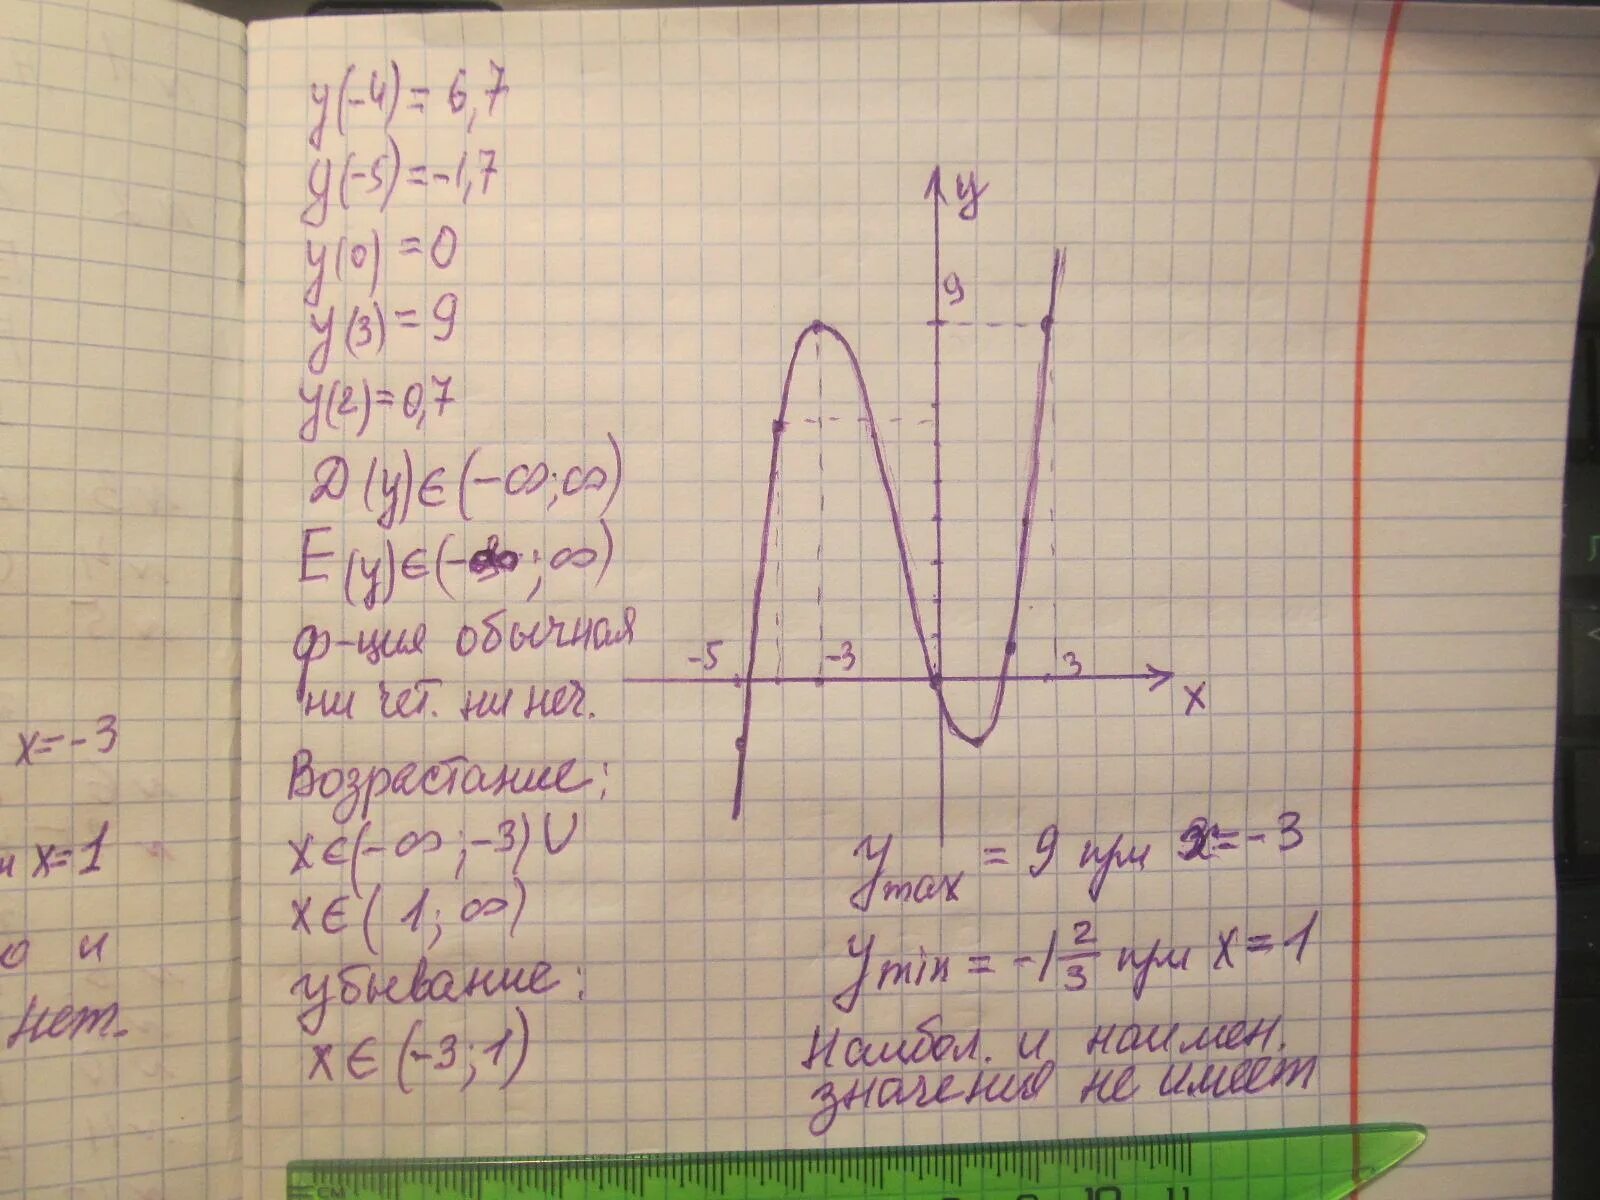 y(-4) = 6,7
y(-5) = -1,7
y(0) = 0
y(3) = 9
y(2) = 0,7
D(y) ∈ (-∞; ∞)
E(y) ∈ (-∞; ∞)
ф-ция обычная
ни чет. ни неч.
Возрастание:
x ∈ (-∞; -3) U
x ∈ (1; ∞)
убывание:
x ∈ (-3; 1)
y
9
-5
-3
3
x
y max = 9 при x = -3
y min = -1 2/3 при x = 1
Наибол. и наимен.
значения не имеет
x = -3
и x = 1
о и
нет.
см
10
11